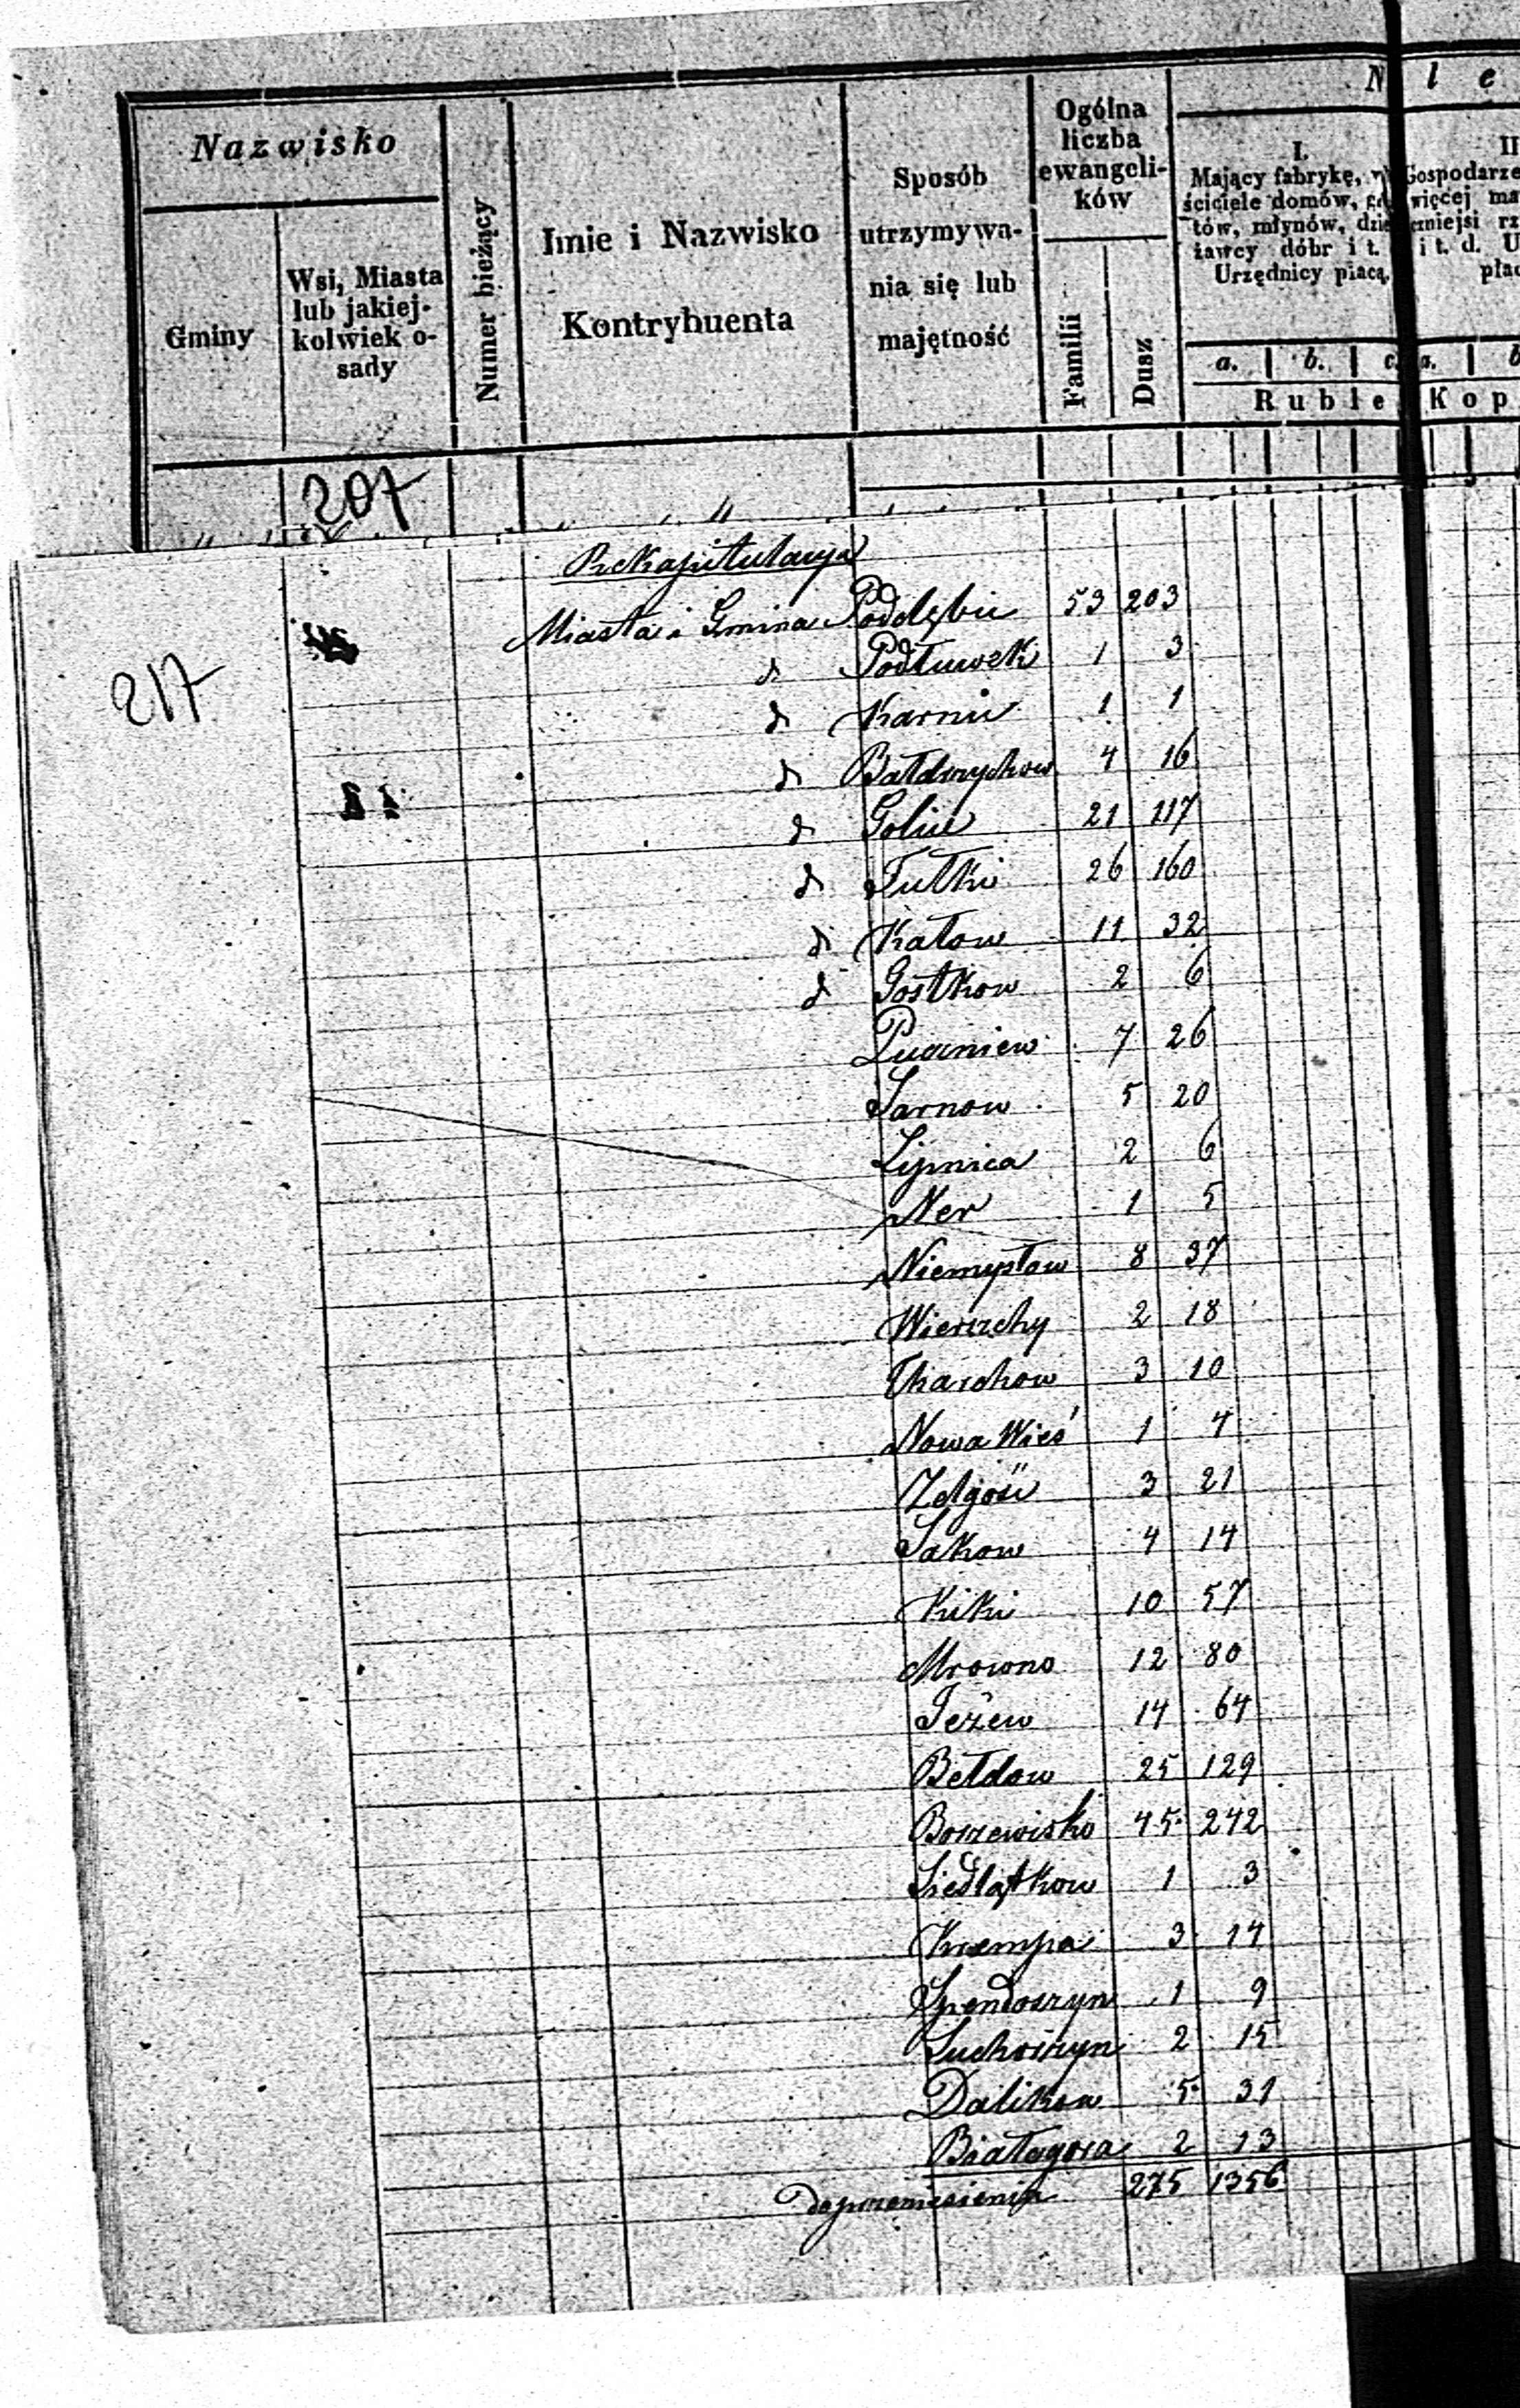 Nazwisko
Gminy
Wsi, Miasta
lub jakiej-
kolwiek o-
sady
Numer bieżący
Imie i Nazwisko
Kontrybuenta
Sposób
utrzymywa-
nia się lub
majętność
Ogólna
liczba
ewangeli-
ków
Familii
Dusz
N l e
I.
Mający fabrykę,
ściciele domów,
tów, młynów,
żawcy dóbr i t.
Urzędnicy płacą.
II
Gospodarze
więcej
i t. d. U
a. b. c. a. b
Ruble Kop
207
217
Rekapitulacya
Miasta i Gmina Poddębice 53 203
d Podłuwek 1 3
d Karnice 1 1
d Bałdrzychow 4 16
d Golice 21 117
d Tutki 26 160
d Kałow 11 32
d Gostkow 2 6
Puczniew 7 26
Sarnow 5 20
Lipnica 2 6
Ner 1 5
Niemysłow 8 37
Wierzchy 2 18
Charchow 3 10
Nowa Wieś 1 4
Zelgość 3 21
Sakow 4 14
Kiki 10 57
Mrowno 12 80
Jeżew 14 64
Bełdow 25 129
Borzewisko 45 242
Siedlątkow 1 3
Krempa 3 14
Spendoszyn 1 9
Suchorzyn 2 15
Dalikow 5 31
Białagora 2 13
do przeniesienia 275 1356